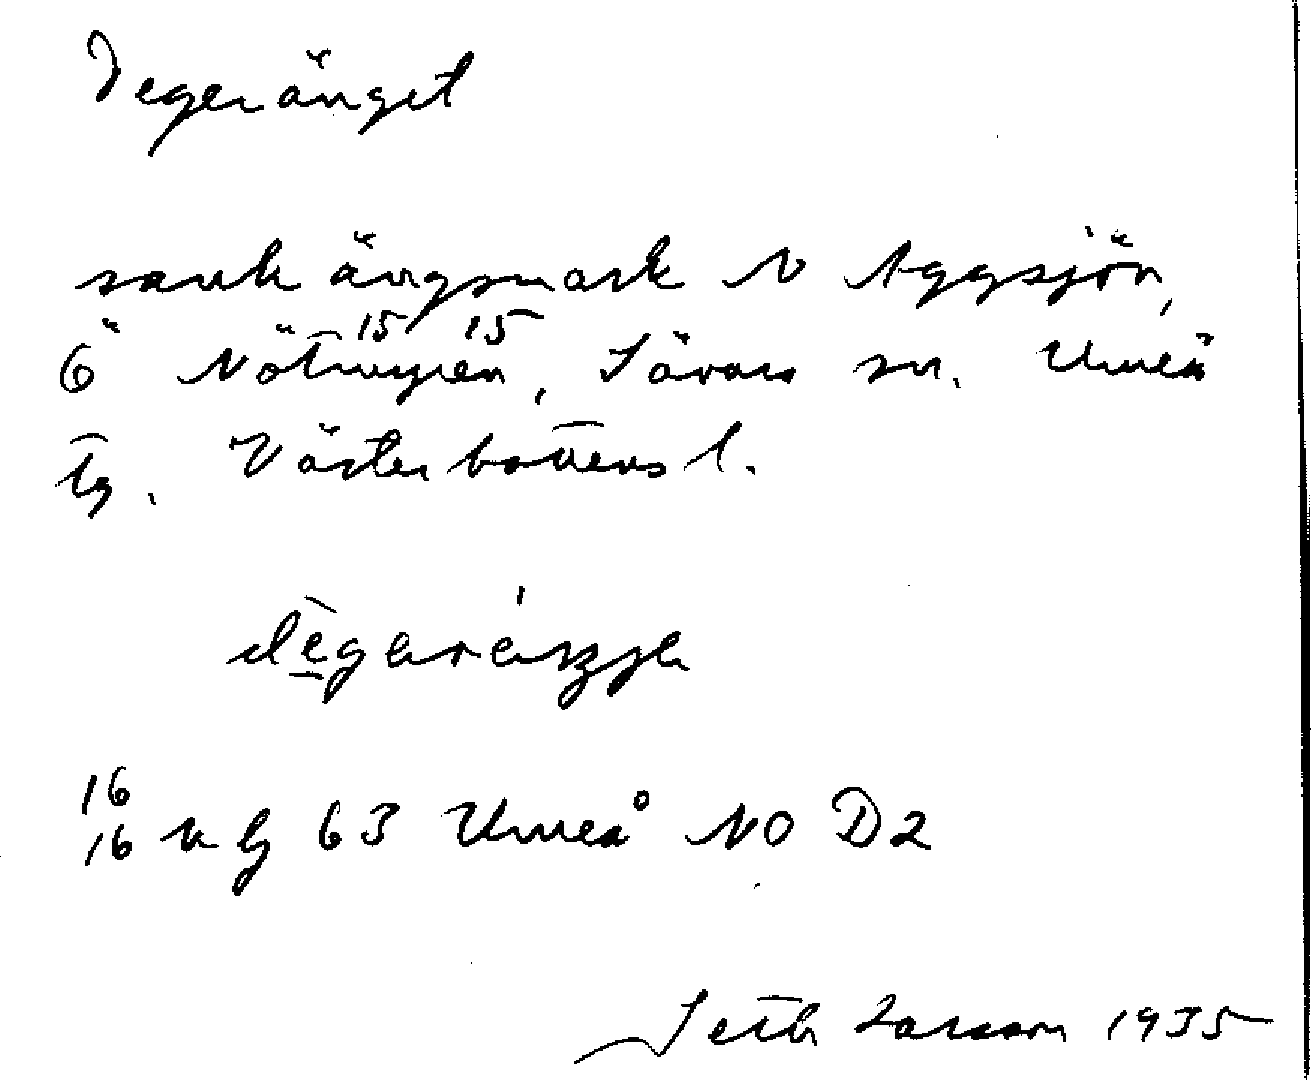 Degeränget
sank ängsmark N Aggsjön,
15 15
Ö Nötmyren, Sävars sn. Umeå
tg. Västerbottens l.
16
16 63 Umeå NO D2
Seth Larsson 1935